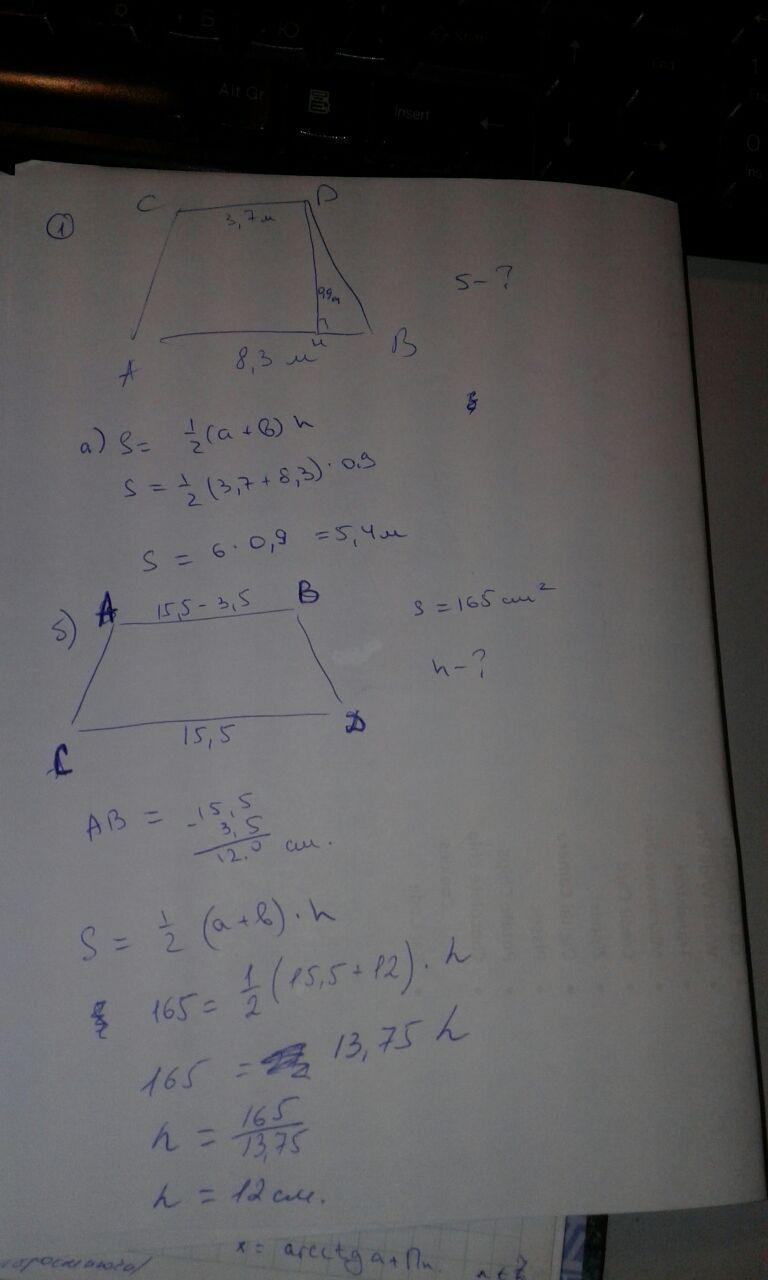 Alt Gr
Insert
①
C D
3,7 м
0,9 м
S - ?
A н B
8,3 м
а) S = 1/2 (a + b) h
S = 1/2 (3,7 + 8,3) · 0,9
S = 6 · 0,9 = 5,4 м
б)
A 15,5 - 3,5 B
S = 165 см²
h - ?
C 15,5 D
AB = - 15,5
3,5
12,0 см.
S = 1/2 (a + b) · h
165 = 1/2 (15,5 + 12) · h
165 = 13,75 h
h = 165/13,75
h = 12 см.
x = arcctg a + Пn